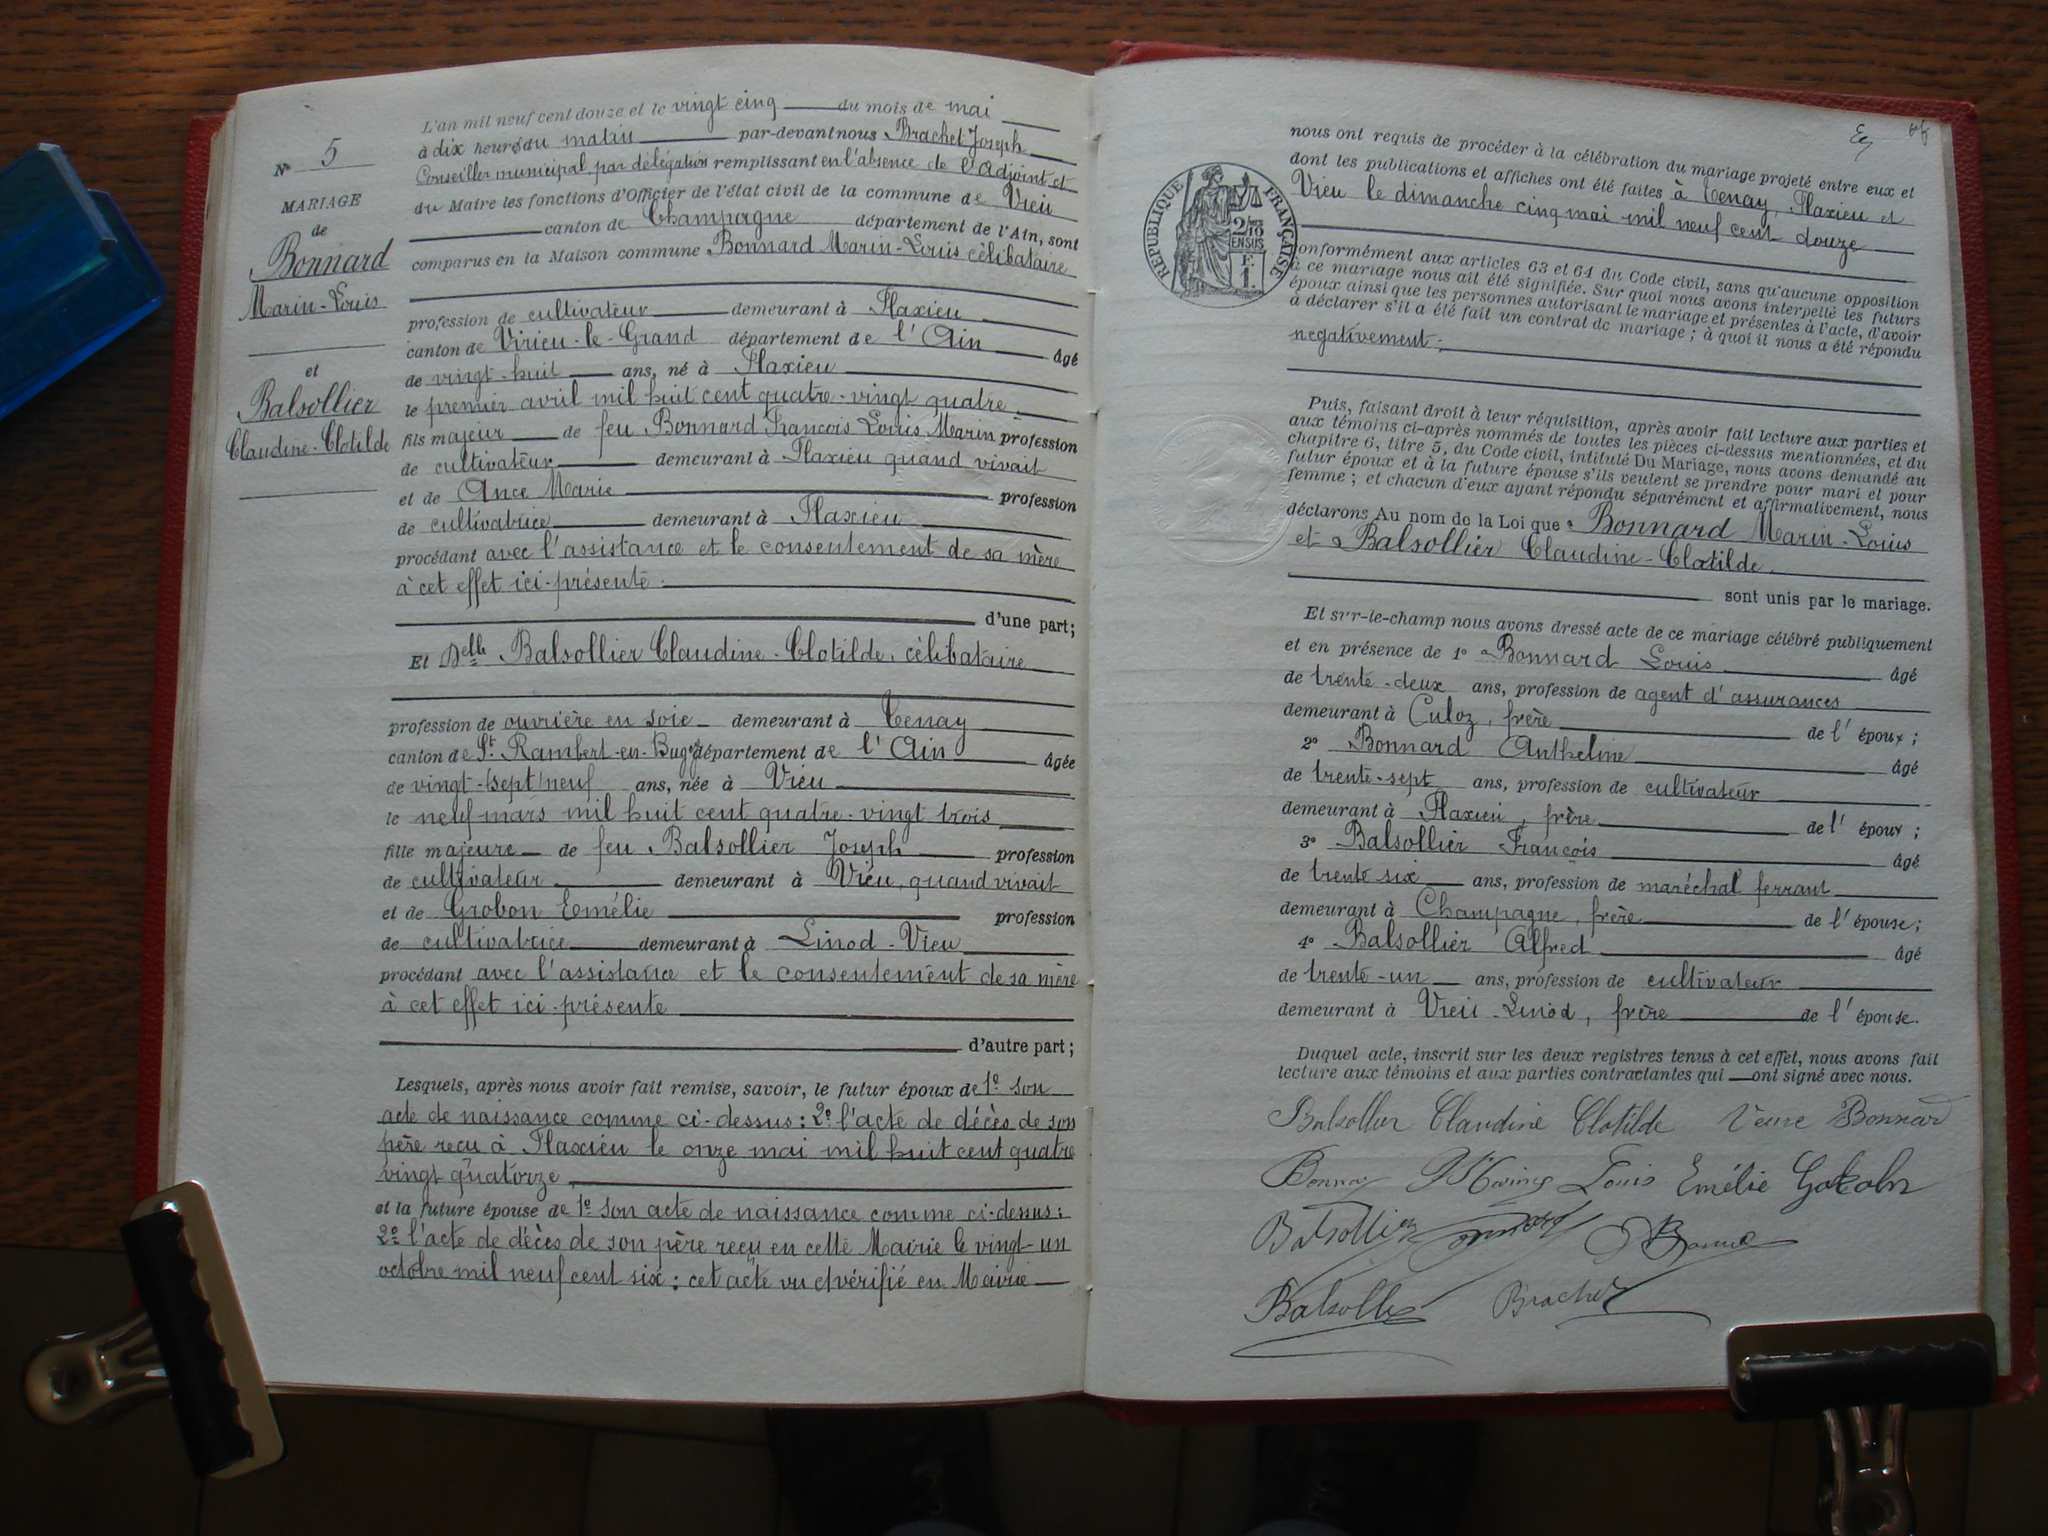 N° 5
MARIAGE
de
Bonnard
Marin-Louis
et
Balsollier
Claudine-Clotilde
L'an mil neuf cent douze et le vingt cinq du mois de mai
à dix heures du matin par-devant nous Brachet Joseph
Conseiller municipal par délégation remplissant en l'absence de l'Adjoint et
du Maire les fonctions d'Officier de l'état civil de la commune de Vieu
canton de Champagne département de l'Ain, sont
comparus en la Maison commune Bonnard Marin-Louis célibataire
profession de cultivateur demeurant à Flaxieu
canton de Virieu-le-Grand département de l'Ain âgé
de vingt-huit ans, né à Flaxieu
le premier avril mil huit cent quatre-vingt quatre
fils majeur de feu Bonnard François Louis Marin profession
de cultivateur demeurant à Flaxieu quand vivait
et de Ance Marie profession
de cultivatrice demeurant à Flaxieu
procédant avec l'assistance et le consentement de sa mère
à cet effet ici-présente.
d'une part;
Et Delle Balsollier Claudine-Clotilde, célibataire
profession de ouvrière en soie demeurant à Tenay
canton de St Rambert-en-Bugey département de l'Ain âgée
de vingt-(sept) neuf ans, née à Vieu
le neuf mars mil huit cent quatre-vingt trois
fille majeure de feu Balsollier Joseph profession
de cultivateur demeurant à Vieu, quand vivait
et de Grobon Emélie profession
de cultivatrice demeurant à Linod-Vieu
procédant avec l'assistance et le consentement de sa mère
à cet effet ici-présente
d'autre part;
Lesquels, après nous avoir fait remise, savoir, le futur époux de 1° son
acte de naissance comme ci-dessus: 2° l'acte de décès de son
père reçu à Flaxieu le onze mai mil huit cent quatre
vingt quatorze
et la future épouse de 1° son acte de naissance comme ci-dessus:
2° l'acte de décès de son père reçu en cette Mairie le vingt-un
octobre mil neuf cent six: cet acte vu et vérifié en Mairie
nous ont requis de procéder à la célébration du mariage projeté entre eux et
dont les publications et affiches ont été faites à Tenay, Flaxieu et
Vieu le dimanche cinq mai mil neuf cent douze
RÉPUBLIQUE FRANÇAISE
2/10
EN SUS
F.
1.
conformément aux articles 63 et 64 du Code civil, sans qu'aucune opposition
à ce mariage nous ait été signifiée. Sur quoi nous avons interpellé les futurs
époux ainsi que les personnes autorisant le mariage et présentes à l'acte, d'avoir
à déclarer s'il a été fait un contrat de mariage; à quoi il nous a été répondu
négativement.
Puis, faisant droit à leur réquisition, après avoir fait lecture aux parties et
aux témoins ci-après nommés de toutes les pièces ci-dessus mentionnées, et du
chapitre 6, titre 5, du Code civil, intitulé Du Mariage, nous avons demandé au
futur époux et à la future épouse s'ils veulent se prendre pour mari et pour
femme; et chacun d'eux ayant répondu séparément et affirmativement, nous
déclarons Au nom de la Loi que Bonnard Marin-Louis
et Balsollier Claudine-Clotilde.
sont unis par le mariage.
Et sur-le-champ nous avons dressé acte de ce mariage célébré publiquement
et en présence de 1° Bonnard Louis âgé
de trente-deux ans, profession de agent d'assurances
demeurant à Culoz, frère de l'époux;
2° Bonnard Anthelme âgé
de trente-sept ans, profession de cultivateur
demeurant à Flaxieu, frère de l'époux;
3° Balsollier François âgé
de trente six ans, profession de maréchal ferrant
demeurant à Champagne, frère de l'épouse;
4° Balsollier Alfred âgé
de trente-un ans, profession de cultivateur
demeurant à Vieu-Linod, frère de l'épouse.
Duquel acte, inscrit sur les deux registres tenus à cet effet, nous avons fait
lecture aux témoins et aux parties contractantes qui ont signé avec nous.
Balsollier Claudine Clotilde Veuve Bonnard
Louis Emélie
Balsollier
Balsollier Brachet